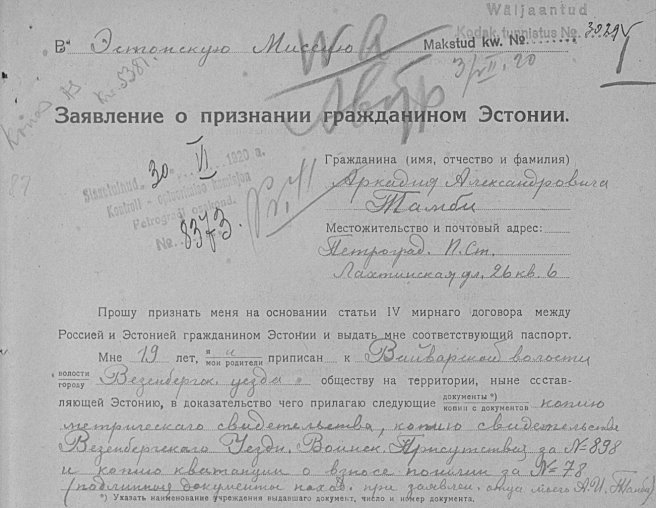 Wäljaantud
Kodak. tunnistus No. 3029
В Эстонскую Миссию
Makstud kw. No.
3/VII. 20
Kw. 5381.
Заявление о признании гражданином Эстонии.
Sissetulnud " 30 " VI 1920 a.
Kontroll - opteerimise komisjon
Petrogradi osakond.
No. 8373.
Гражданина (имя, отчество и фамилия)
Аркадия Александровича
Тамби
Местожительство и почтовый адрес:
Петроград. П. Ст.
Лахтинская ул. 26 кв. 6
Прошу признать меня на основании статьи IV мирнаго договора между
Россией и Эстонией гражданином Эстонии и выдать мне соответствующий паспорт.
Мне 19 лет, я и мои родители приписан к Вайварской волости
волости городу Везенбергск. уезда обществу на территории, ныне состав-
ляющей Эстонию, в доказательство чего прилагаю следующие документы *) копии с документов копию
метрическаго свидетельства, копию свидетельства
Везенбергскаго Уездн. Воинск. Присутствия за № 898
и копию квитанции о взносе пошлин за № 78
(подлинныя документы наход. при заявлен. отца моего А. И. Тамби)
*) Указать наименование учреждения выдавшаго документ, число и номер документа.